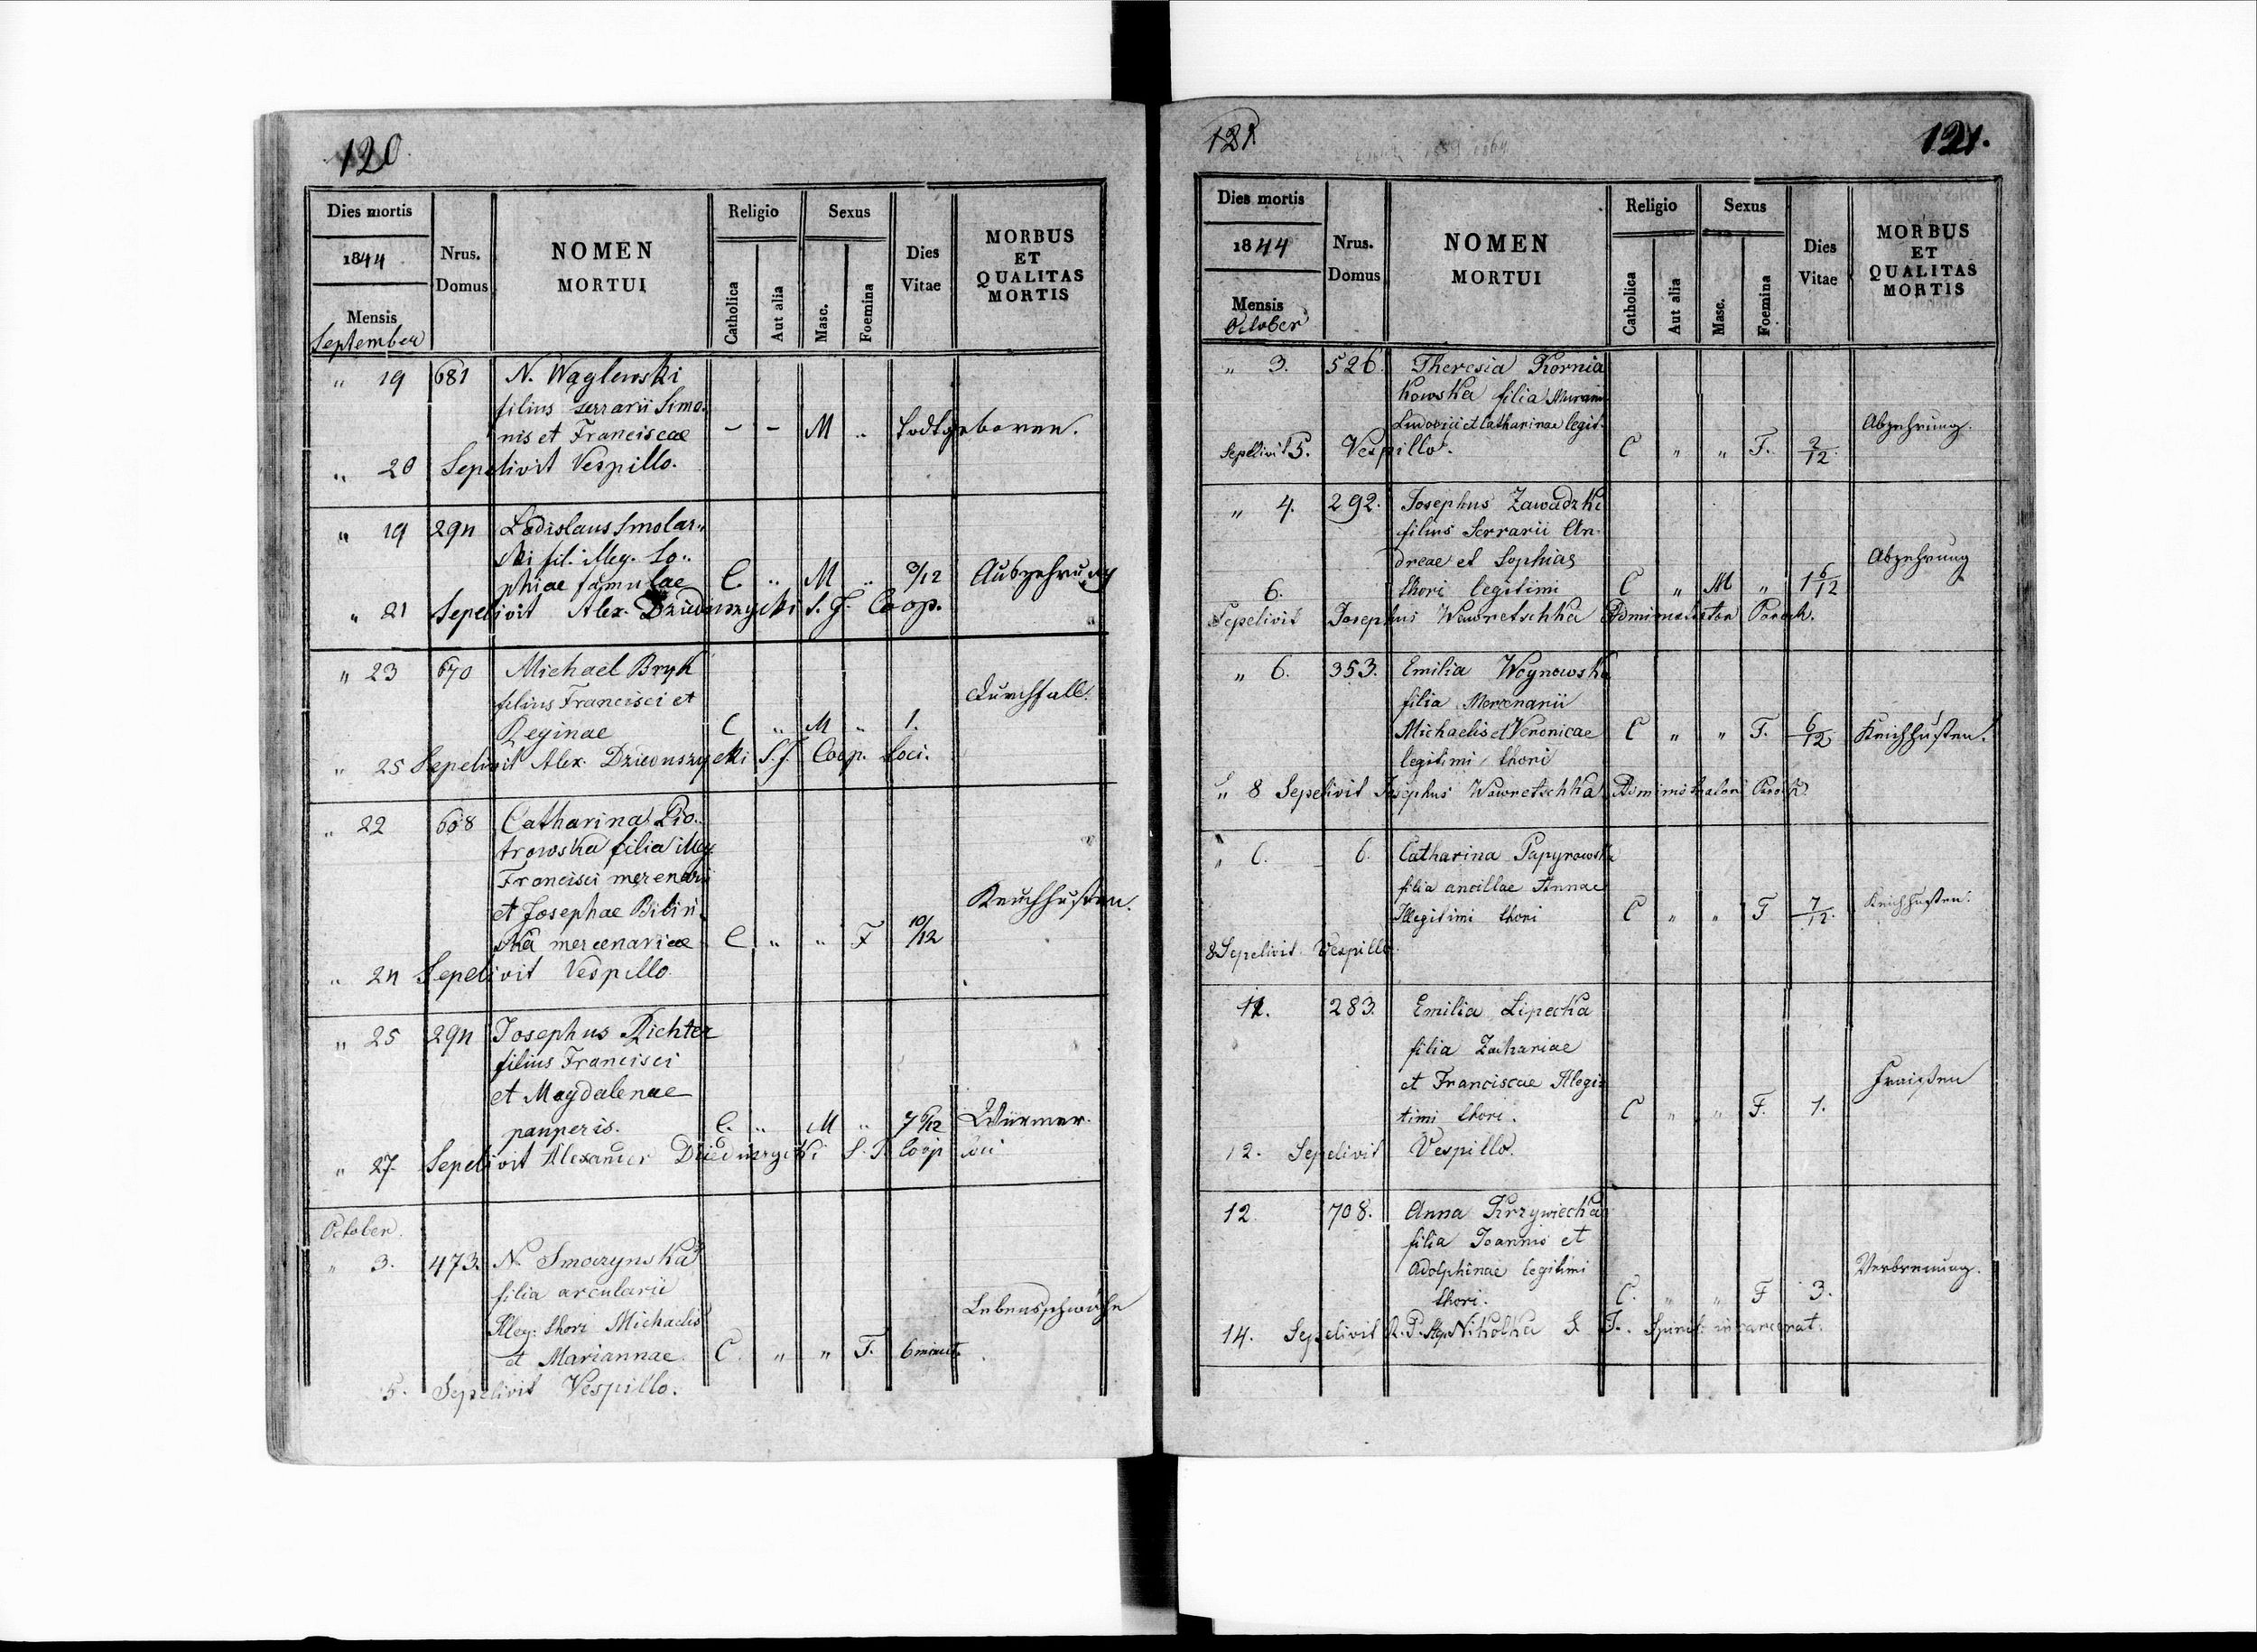 120
Dies mortis
1844
Mensis
September
Nrus.
Domus
NOMEN
MORTUI
Religio
Catholica
Aut alia
Sexus
Masc.
Foemina
Dies
Vitae
MORBUS
ET
QUALITAS
MORTIS
" 19 681 N. Wąglewski
filius serrarii Simo-
nis et Franciscae - - M " todtgeboren.
" 20 Sepelivit Vespillo.
" 19 294 Ladislaus Smolar-
ski fil. illeg. So-
phiae famulae C. " M " 3/12 Auszehrung
" 21 Sepelivit Alex. Dzieduszycki S. J. Coop.
" 23 670 Michael Bryk
filius Francisci et Durchfall.
Reginae C " M " 1.
" 25 Sepelivit Alex. Dzieduszycki S. J. Coop. Loci.
" 22 608 Catharina Pio-
trowska filia illeg.
Francisci mercenarii
et Josephae Bilin- Keuchhusten.
ska mercenariae C " " F 10/12
" 24 Sepelivit Vespillo
" 25 294 Josephus Richter
filius Francisci
et Magdalenae
pauperis. C. " M " 7 6/12 Würmer.
" 27. Sepelivit Alexander Dzieduszycki S. J. Coop loci
October.
" 3. 473. N. Smoczynska
filia arcularii
Illeg: thori Michaelis Lebensschwäche
et Mariannae C. " " F. 6 minut.
5. Sepelivit Vespillo.
121
121.
Dies mortis
1844
Mensis
October
Nrus.
Domus
NOMEN
MORTUI
Religio
Catholica
Aut alia
Sexus
Masc.
Foemina
Dies
Vitae
MORBUS
ET
QUALITAS
MORTIS
" 3. 526. Theresia Kornia
kowska filia
Ludovici et Catharinae legit. Abzehrung.
Sepelivit 5. Vespillo. C " " F. 2/12.
" 4. 292. Josephus Zawadzki
filius Serrarii An-
dreae et Sophias Abzehrung
6. thori legitimi C " M " 1 6/12
Sepelivit Josephus Wawretschka Administrator Paroch.
" 6. 353. Emilia Woynowska
filia Mercenarii
Michaelis et Veronicae C " " F. 6/12 Keichhusten.
legitimi thori
" 8 Sepelivit Josephus Wawretschka Administrator Paroch.
" 6. 6. Catharina Papyrowska
filia ancillae Annae
Illegitimi thori C " " F 7/12. Keichhusten.
8 Sepelivit Vespillo
11. 283. Emilia Lipecka
filia Zachariae
et Franciscae Illegi- Fraisen
timi thori. C " " F. 1.
12. Sepelivit Vespillo.
12. 708. Anna Krzywiecka
filia Joannis et
Adolphinae legitimi Verbrennung.
thori. C. " " F 3.
14. Sepelivit R. P. Nikolka S. J.